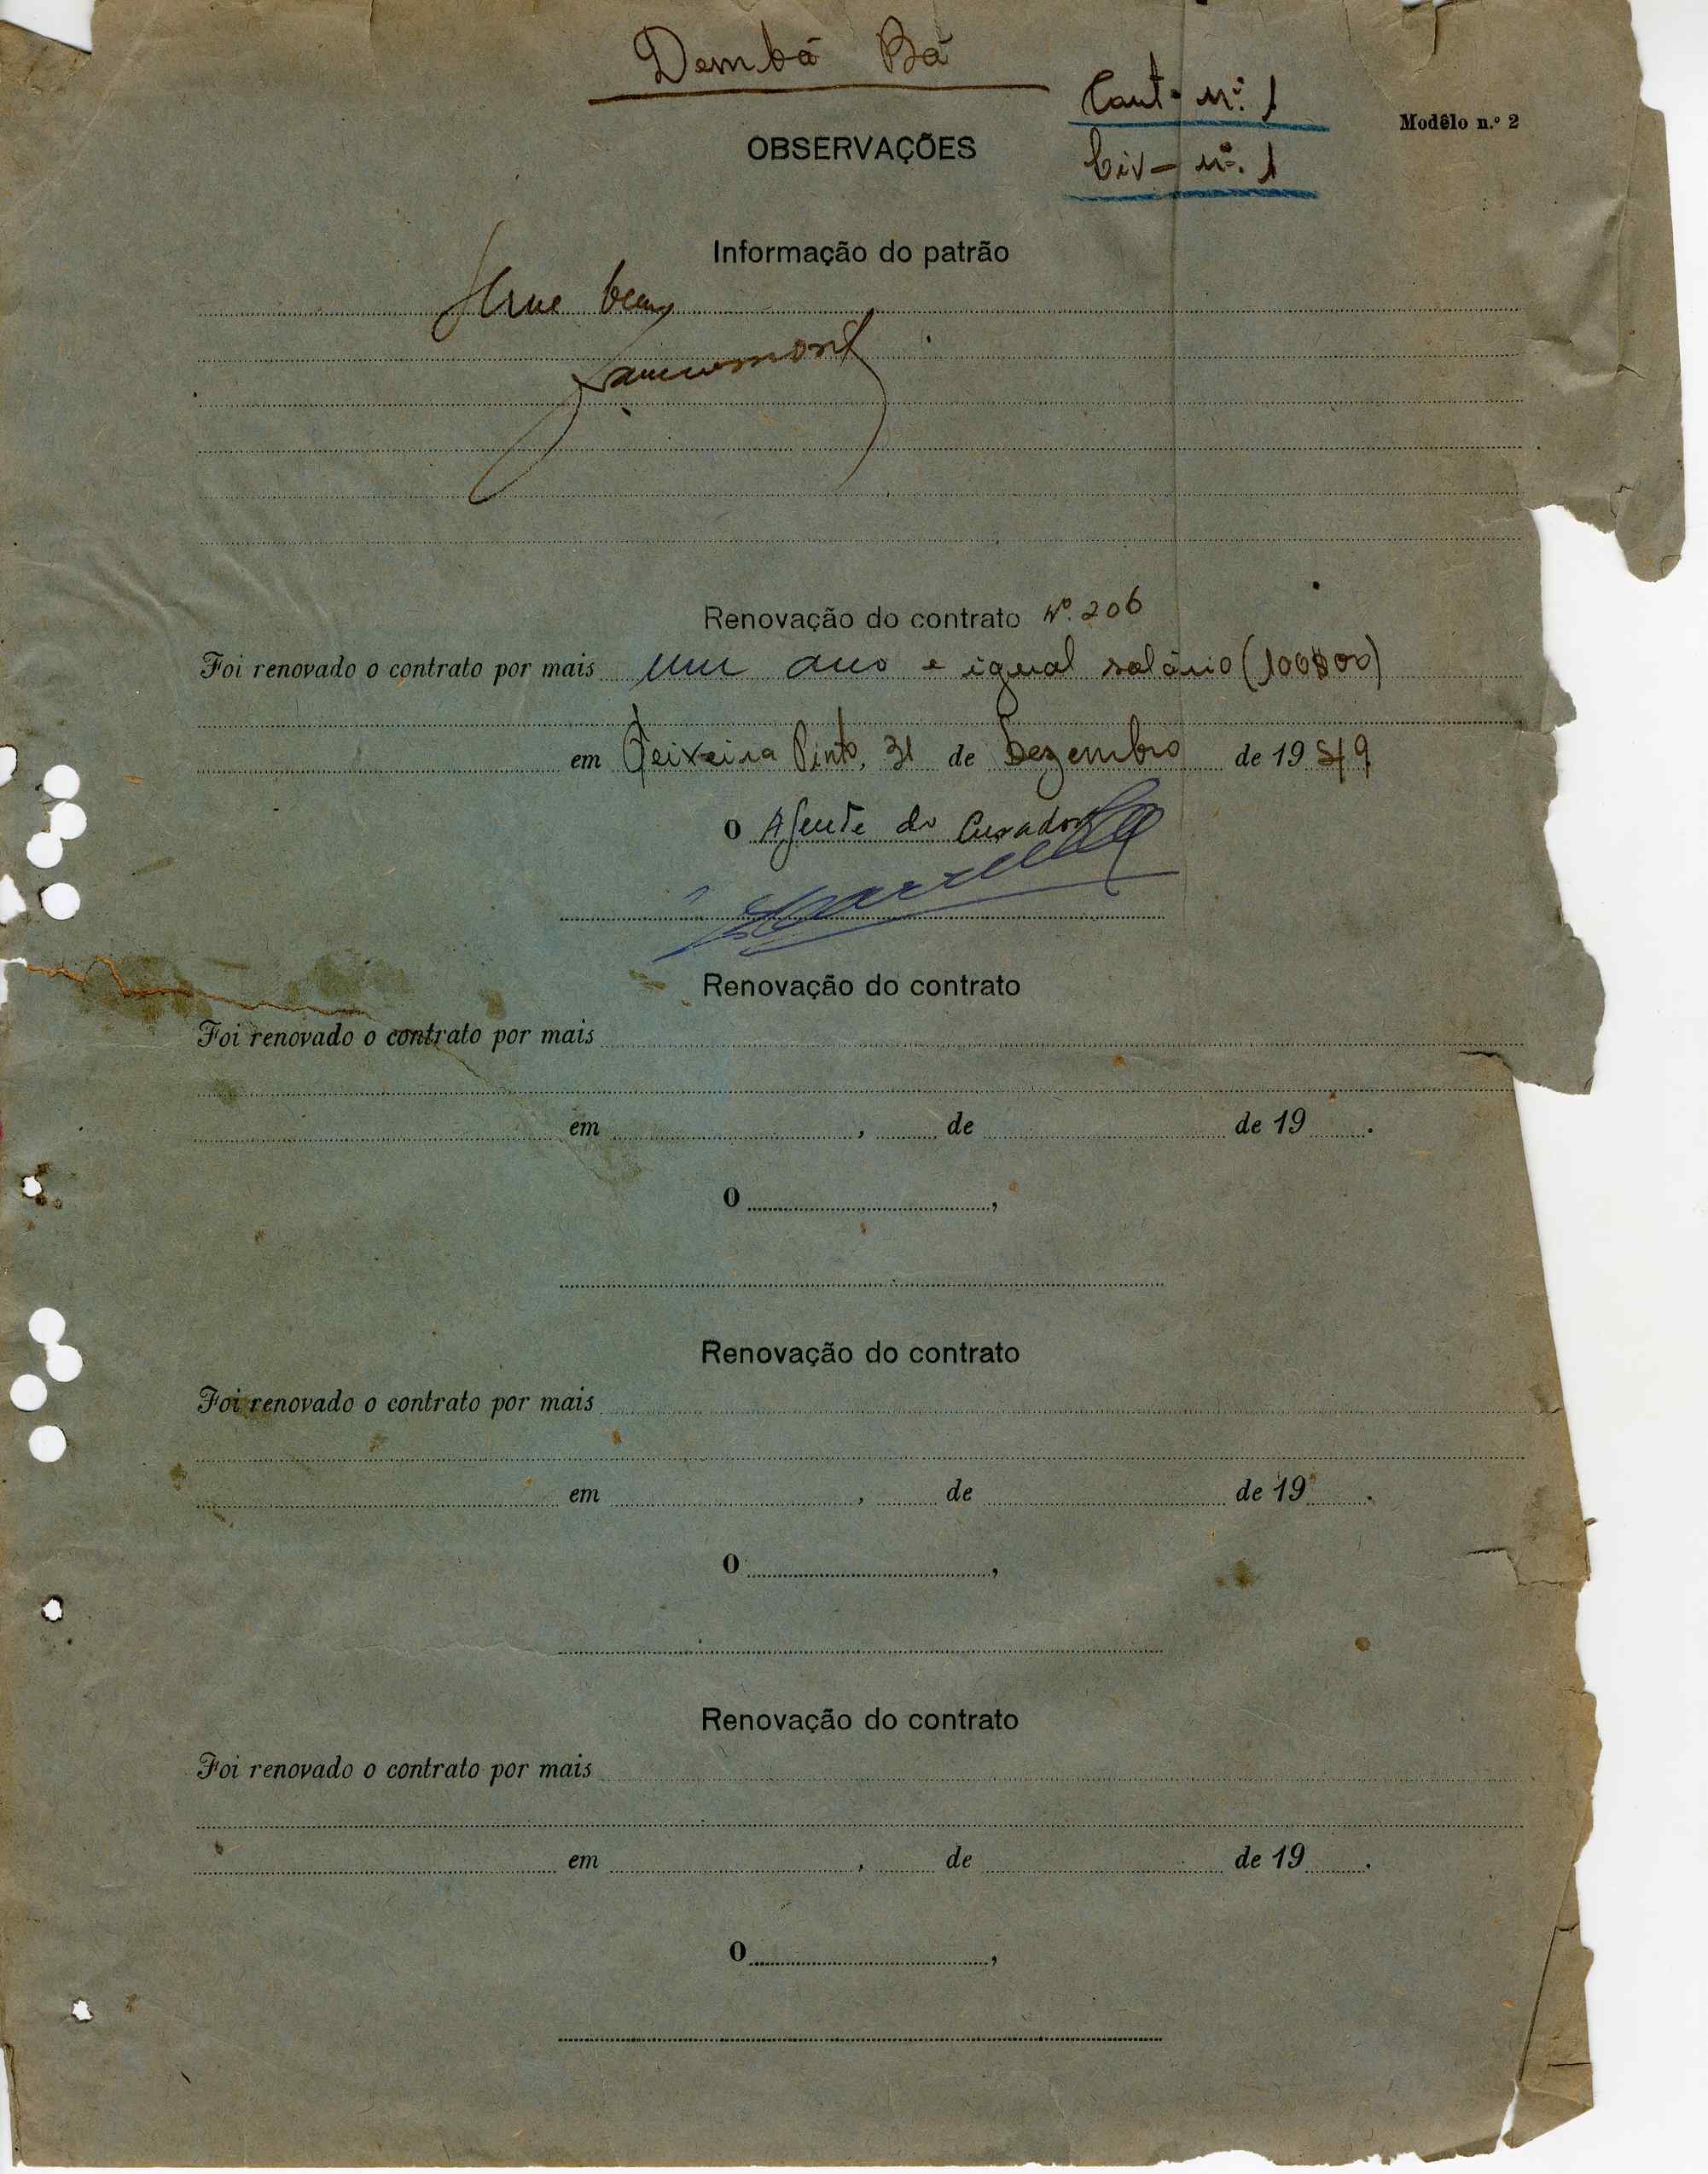 Dembá Bá
Cart. nº. 1
Modêlo n.º 2
OBSERVAÇÕES
Civ - nº. 1
Informação do patrão
Serve bem
Renovação do contrato Nº. 206
Foi renovado o contrato por mais um ano e igual salário (100$00)
em Teixeira Pinto, 31 de Dezembro de 1949
O Agente do Curador
Renovação do contrato
Foi renovado o contrato por mais
em , de de 19 .
O ,
Renovação do contrato
Foi renovado o contrato por mais
em , de de 19 .
O ,
Renovação do contrato
Foi renovado o contrato por mais
em , de de 19 .
O ,